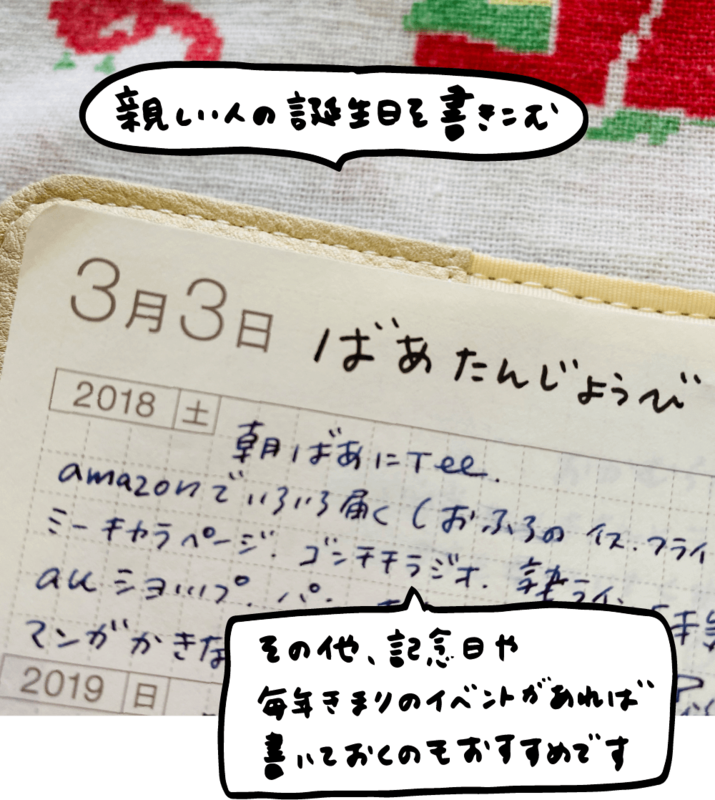 親しい人の誕生日を書きこむ
3月3日 ばあ たんじょうび
2018 土
朝ばあにTee.
amazonでいろいろ届く(おふろのイス.フライ
ミーキャラページ.ゴンチチラジオ.
auショップ.パ
マンガかきな
2019 日
その他、記念日や
毎年きまりのイベントがあれば
書いておくのもおすすめです